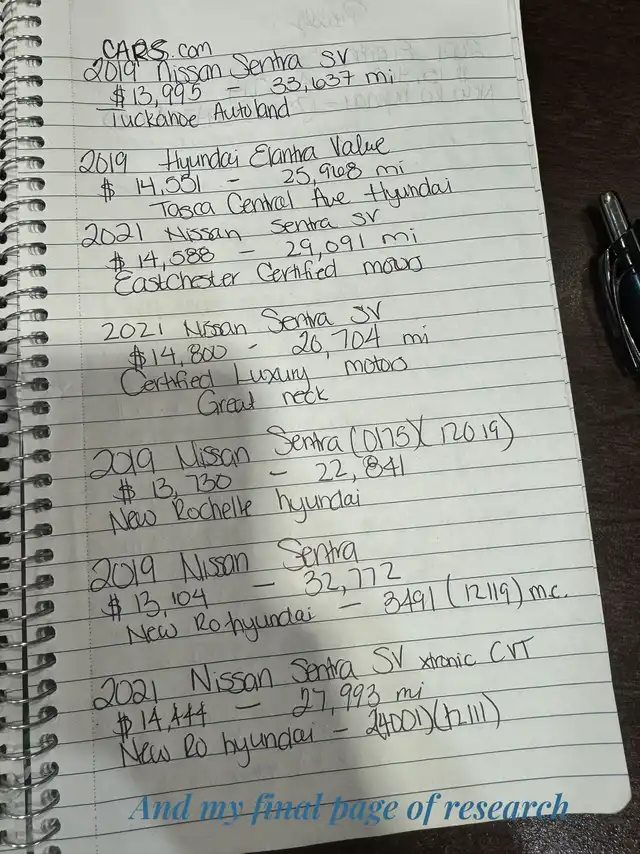 CARS.com
2019 Nissan Sentra SV
$13,995 - 33,637 mi
Tuckahoe Autoland
2019 Hyundai Elantra Value
$ 14,551 - 25,968 mi
Tosca Central Ave Hyundai
2021 Nissan Sentra SV
$14,588 - 29,091 mi
Eastchester Certified motors
2021 Nissan Sentra SV
$14,800 - 20,704 mi
Certified Luxury motors
Great neck
2019 Nissan Sentra (0175)(12019)
$ 13,730 - 22,841
New Rochelle hyundai
2019 Nissan Sentra
$13,104 - 32,772
New Ro hyundai - 3491 (12119) m.c.
2021 Nissan Sentra SV xtronic CVT
$14,444 - 27,993 mi
New Ro hyundai - 24001)(12111)
And my final page of research